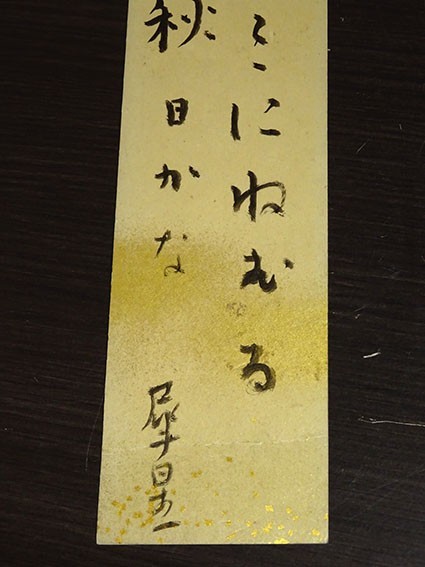 こにねむる
秋日かな
犀星